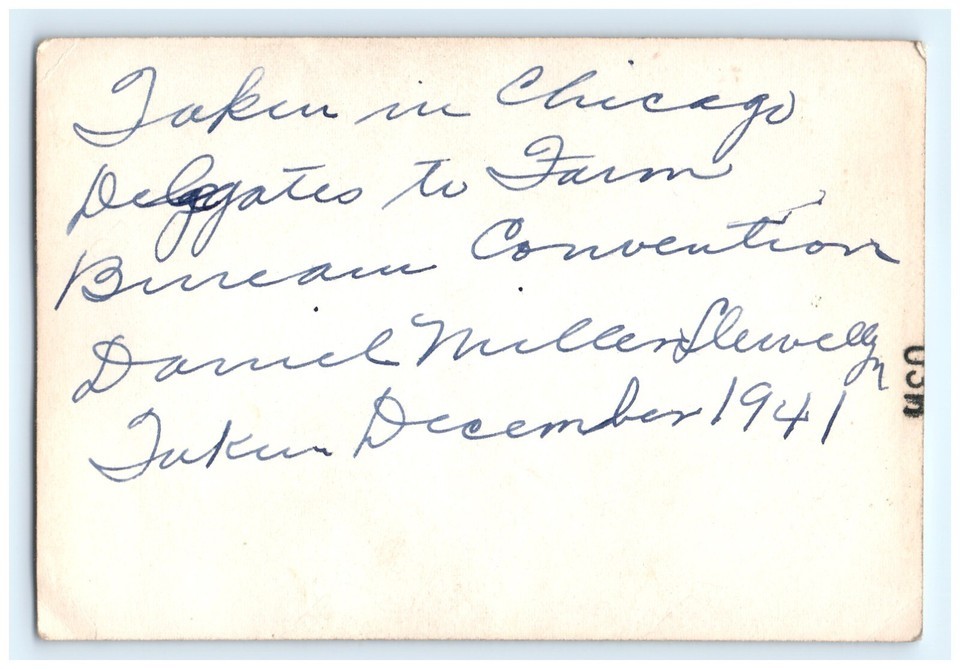 Taken in Chicago
Delegates to Farm
Bureau Convention
Daniel Miller Llewellyn
Taken December 1941